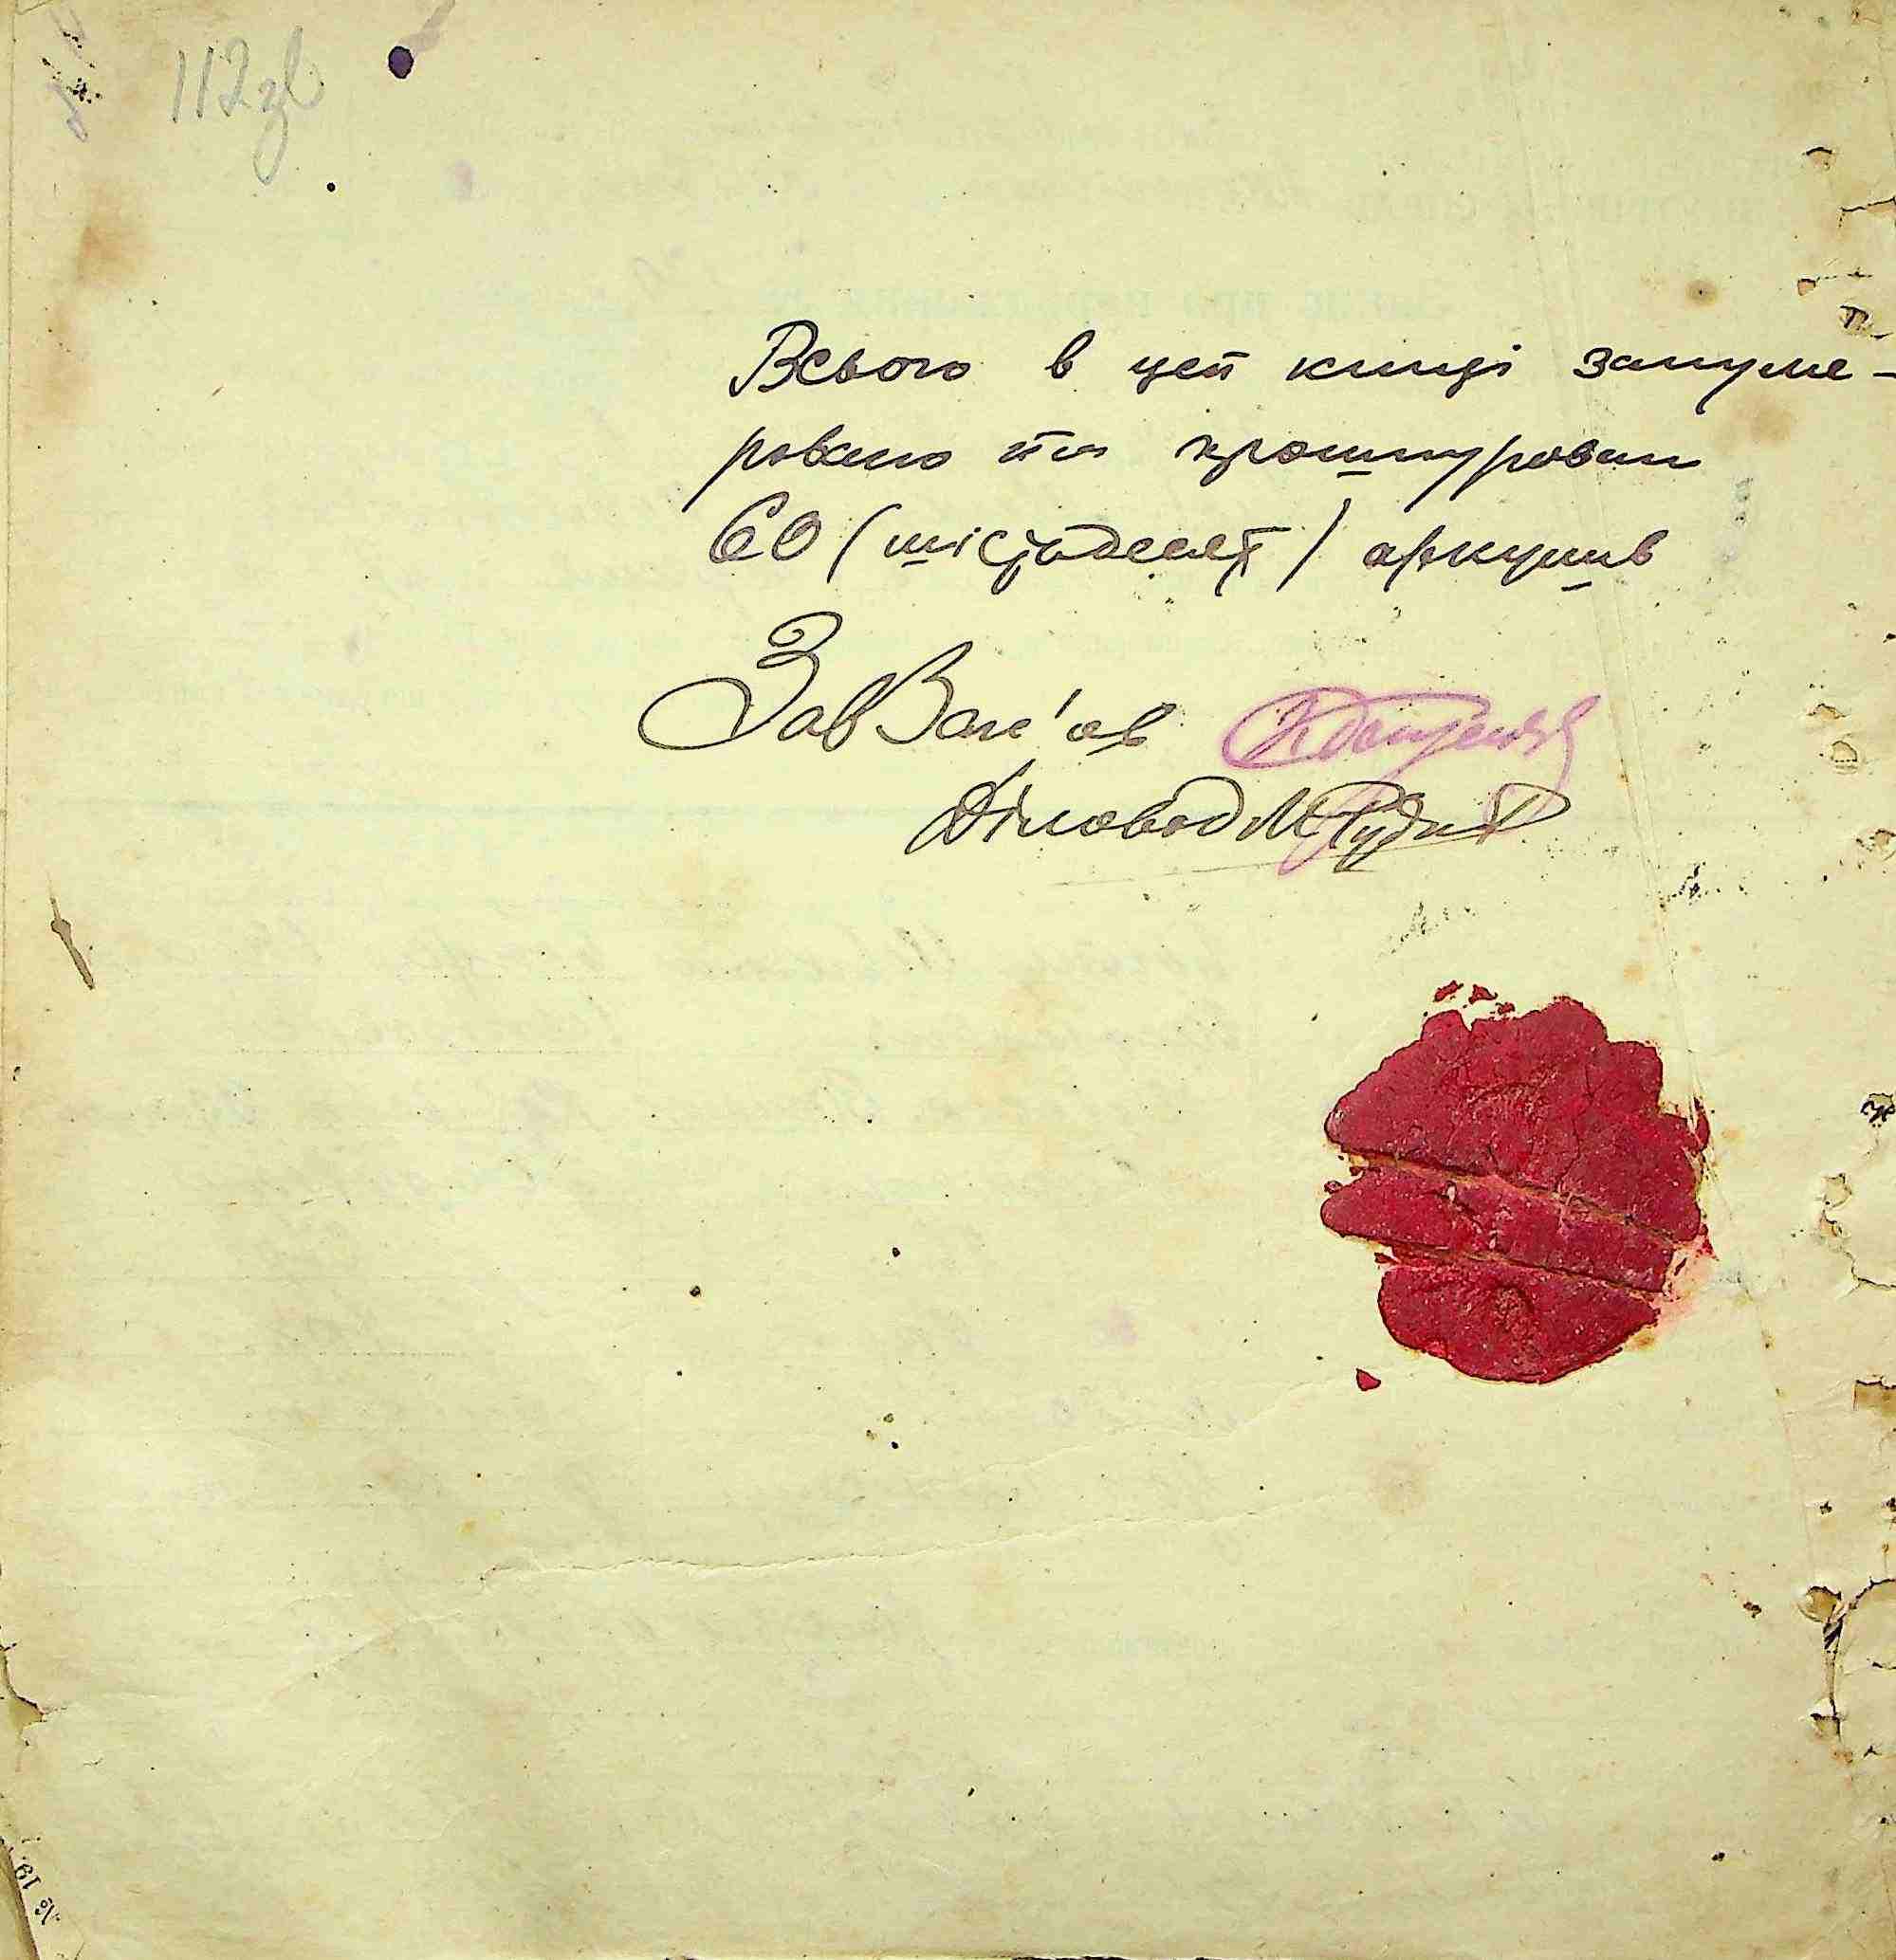 112зв
Всього в цей книзі зануме-
ровано та прошнурован
60 (шістьдесят) аркушів
Зав
Діловод М
№ 19